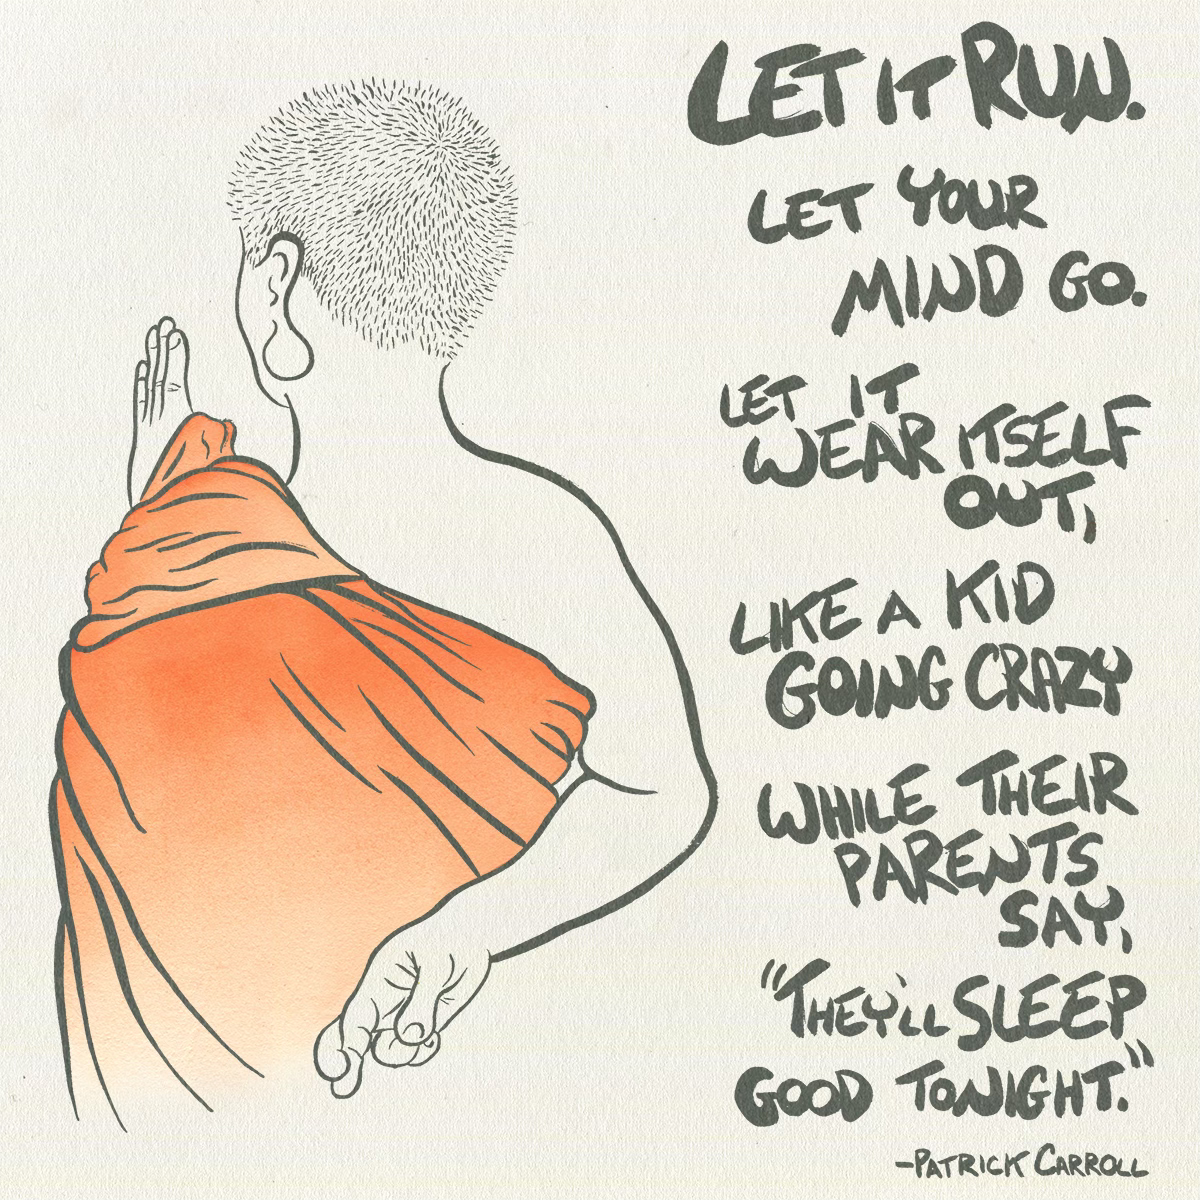 LET IT RUN.
LET YOUR
MIND GO.
LET IT
WEAR ITSELF
OUT,
LIKE A KID
GOING CRAZY
WHILE THEIR
PARENTS
SAY,
"THEY'LL SLEEP
GOOD TONIGHT."
-PATRICK CARROLL